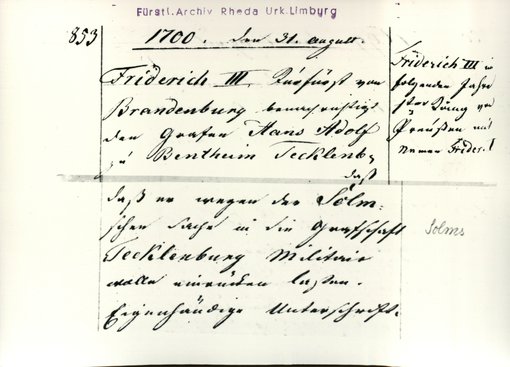 Fürstl. Archiv Rheda Urk. Limburg
853
1700. den 31. august.
Friderich III. Kurfürst von
Brandenburg benachrichtigt
den Grafen Hans Adolf
zu Bentheim Tecklenb,
daß
daß er wegen der Solm-
schen Sache in die Grafschaft
Tecklenburg Militair
wolle einrücken lassen.
Eigenhändige Unterschrift.
Friderich III
folgenden Jahre
König
Preußen mit
Namen Frider. I
Solms